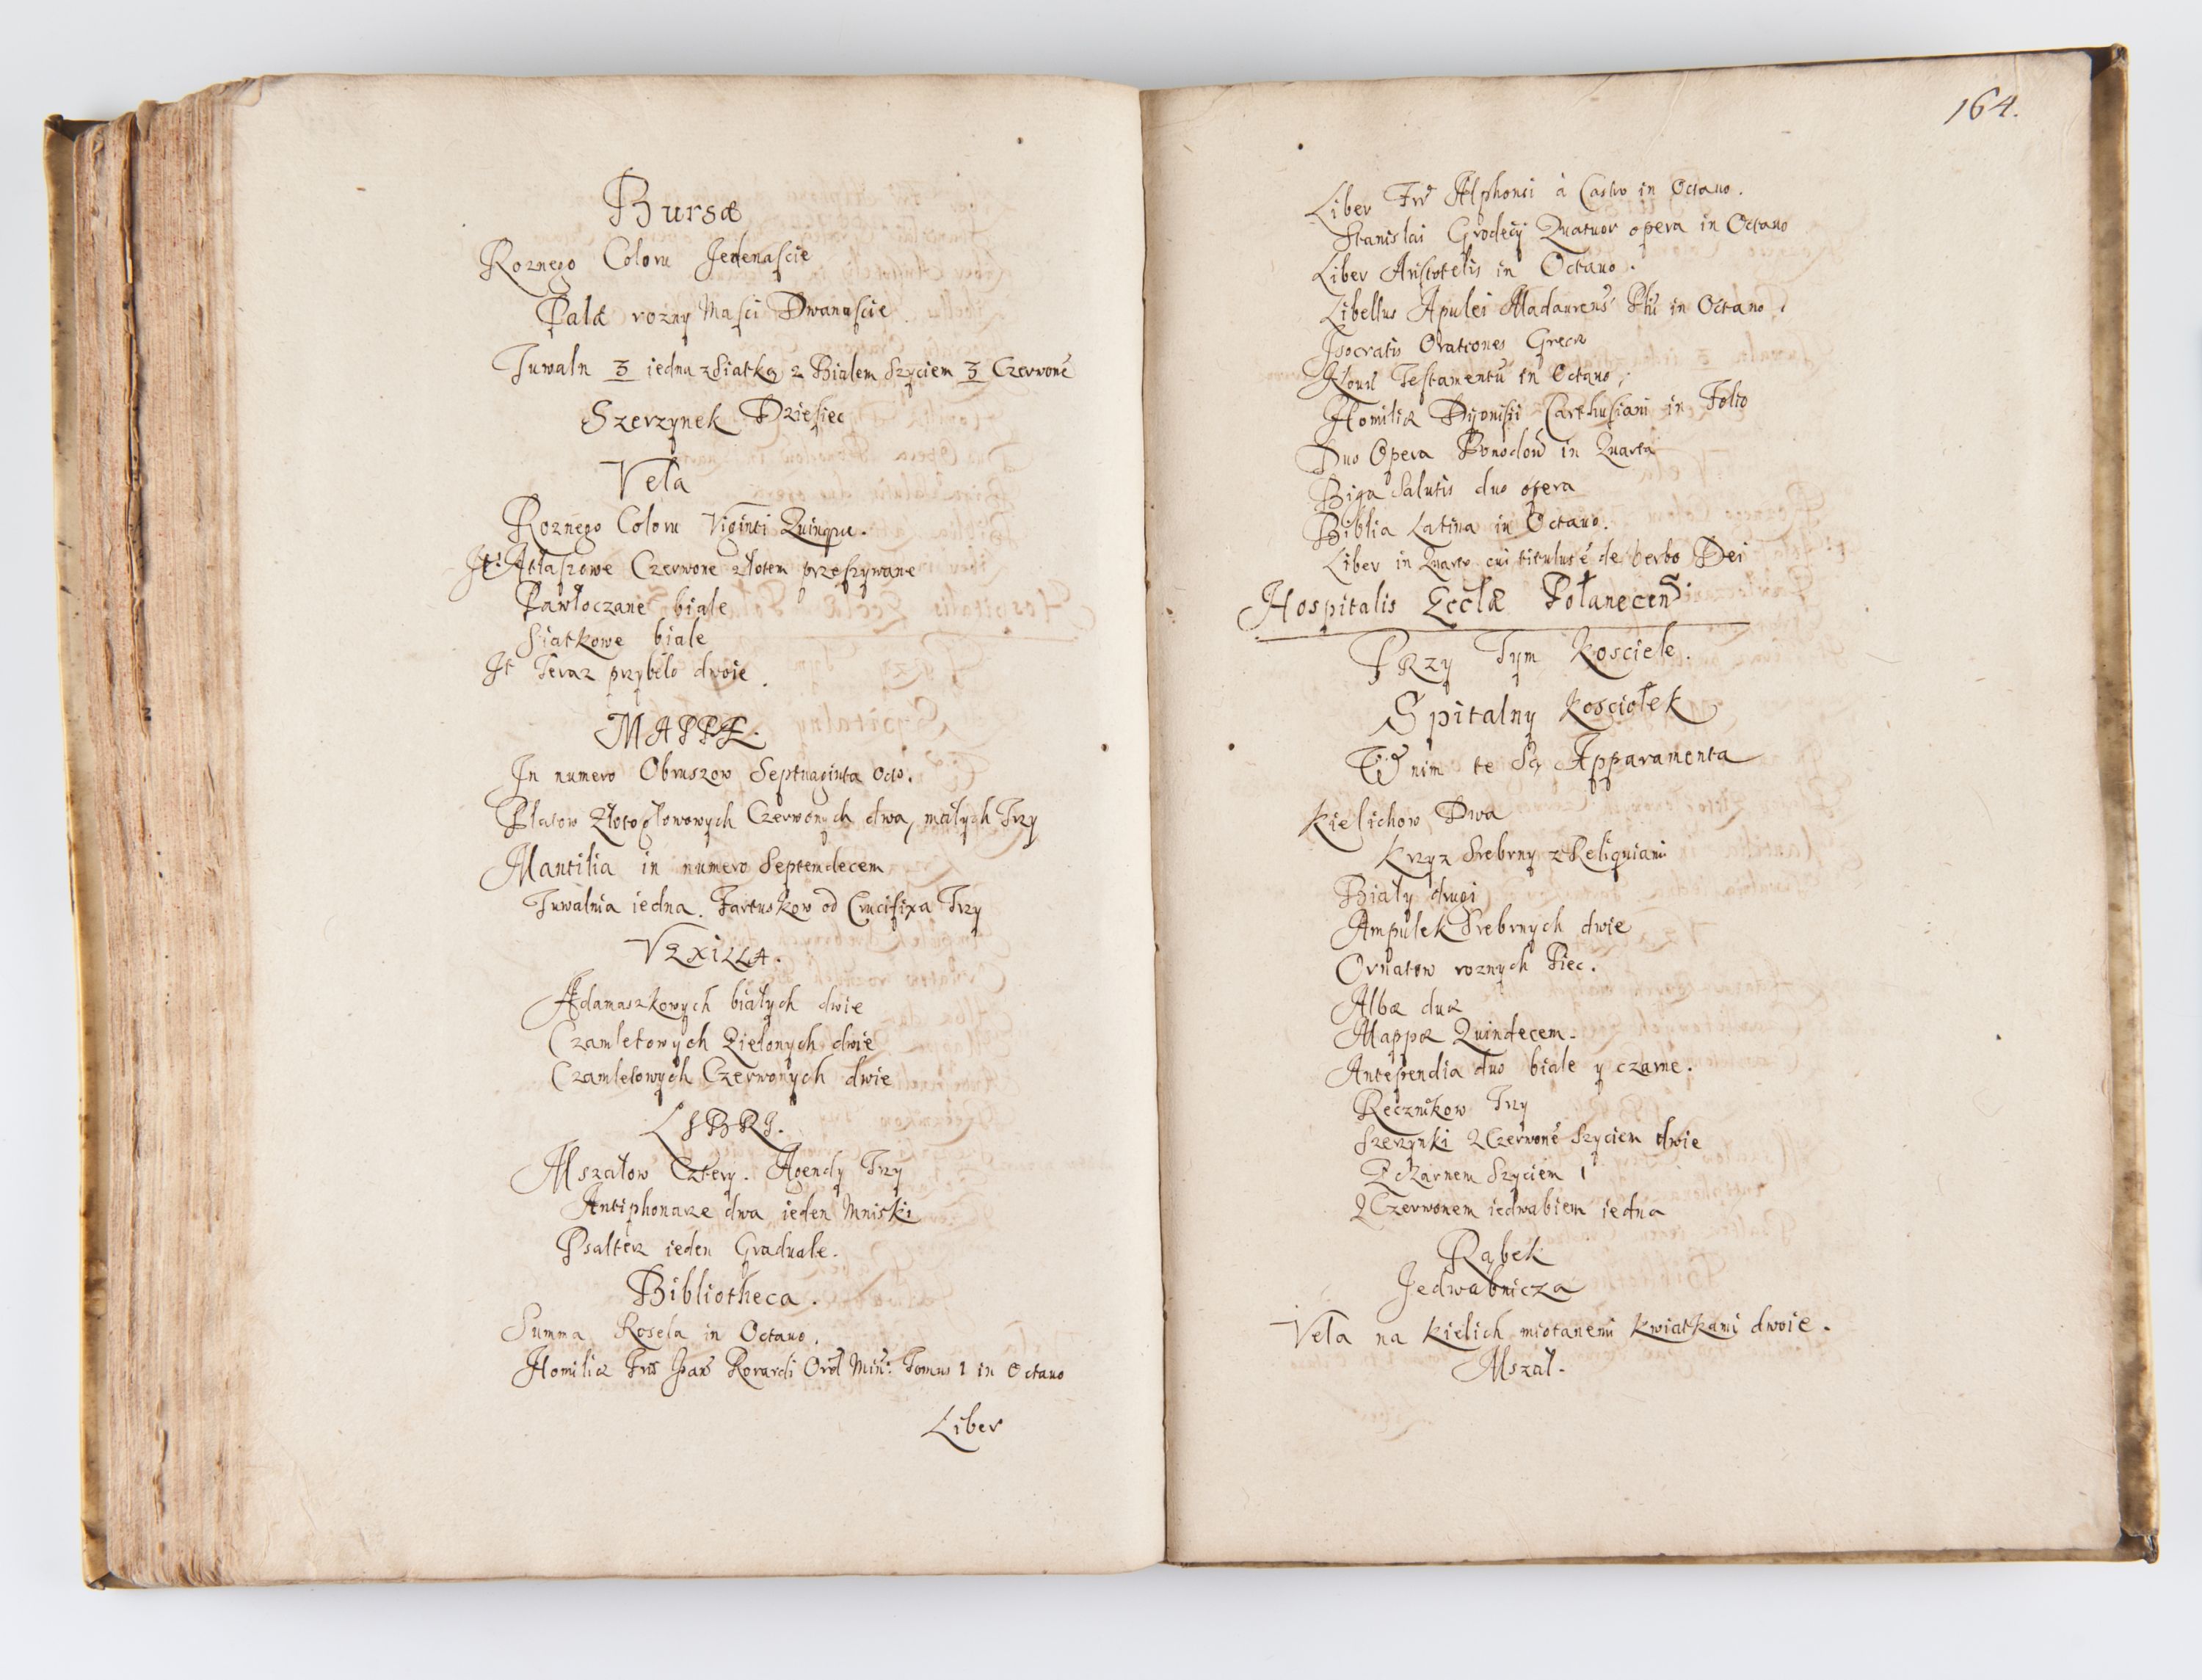 Bursæ
Roznego Coloru Jedenascie
Palæ rozny Masci Dwanascie
Tuwaln 3 iedna z Siatką z Bialem Szyciem 3 Czerwoné
Szerzynek Dziesiec
Vela
Roznego Coloru Viginti Quinque.
It: Atłasowe Czerwone złotem przeszywane
Pawłoczane białe
Siatkowe biale
It Teraz przybeło dwoie.
MAPPÆ.
In numero Obruszow Septuaginta octo.
Płatow Złotogłowowych Czerwonych dwa, małych Trzy
Mantilia in numero Septemdecem
Tuwalnia iedna. Fartuskow od Crucifixa Trzy
VEXILLA.
Adamaszkowych białych dwie
Czamletowych Zielonych dwie
Czamletowych Czerwonych dwie
LIBRI.
Mszałow Cztery. Agendy Trzy
Antiphonarze dwa ieden Mniski
Psalterz ieden Graduale.
Bibliotheca.
Summa Rosela in Octauo.
Homiliæ Fris Joañ Rovardi Ord Miñ: Tomus 1 in Octauo
Liber
164.
Liber Fr Alphonsi à Castro in Octauo.
Stanislai Grodecij Quatuor opera in Octauo
Liber Aristotelis in Octauo.
Libellus Apulei Madaurens Phi in Octauo.
Isocratis Orationes Grecæ
Noui Testamentũ in Octauo,
Homiliæ Dijonisii Carthusiani in Folio
Duo Opera in Quarto
Biga Salutis duo opera
Biblia Latina in Octauo.
Liber in Quarto cui titulus é de verbo Dei
Hospitalis Ecclæ Połanecens
Przy Tym Kosciele.
Spitalny Kosciołek
W nim te Są Apparamenta
Kielichow Dwa
Krzyz Srebrny z Reliquiami
Biały drugi
Ampułek Srebrnych dwie
Ornatow roznych Piec.
Albæ duæ
Mappæ Quindecem.
Antependia duo biale y czarne.
Recznikow Trzy
Szerzynki z Czerwoné Szyciem dwie
Z Czarnem Szyciem 1
Z Czerwonem iedwabiem iedna
Rąbek
Jedwabnicza
Vela na Kielich miotanemi kwiatkami dwoie.
Mszał.